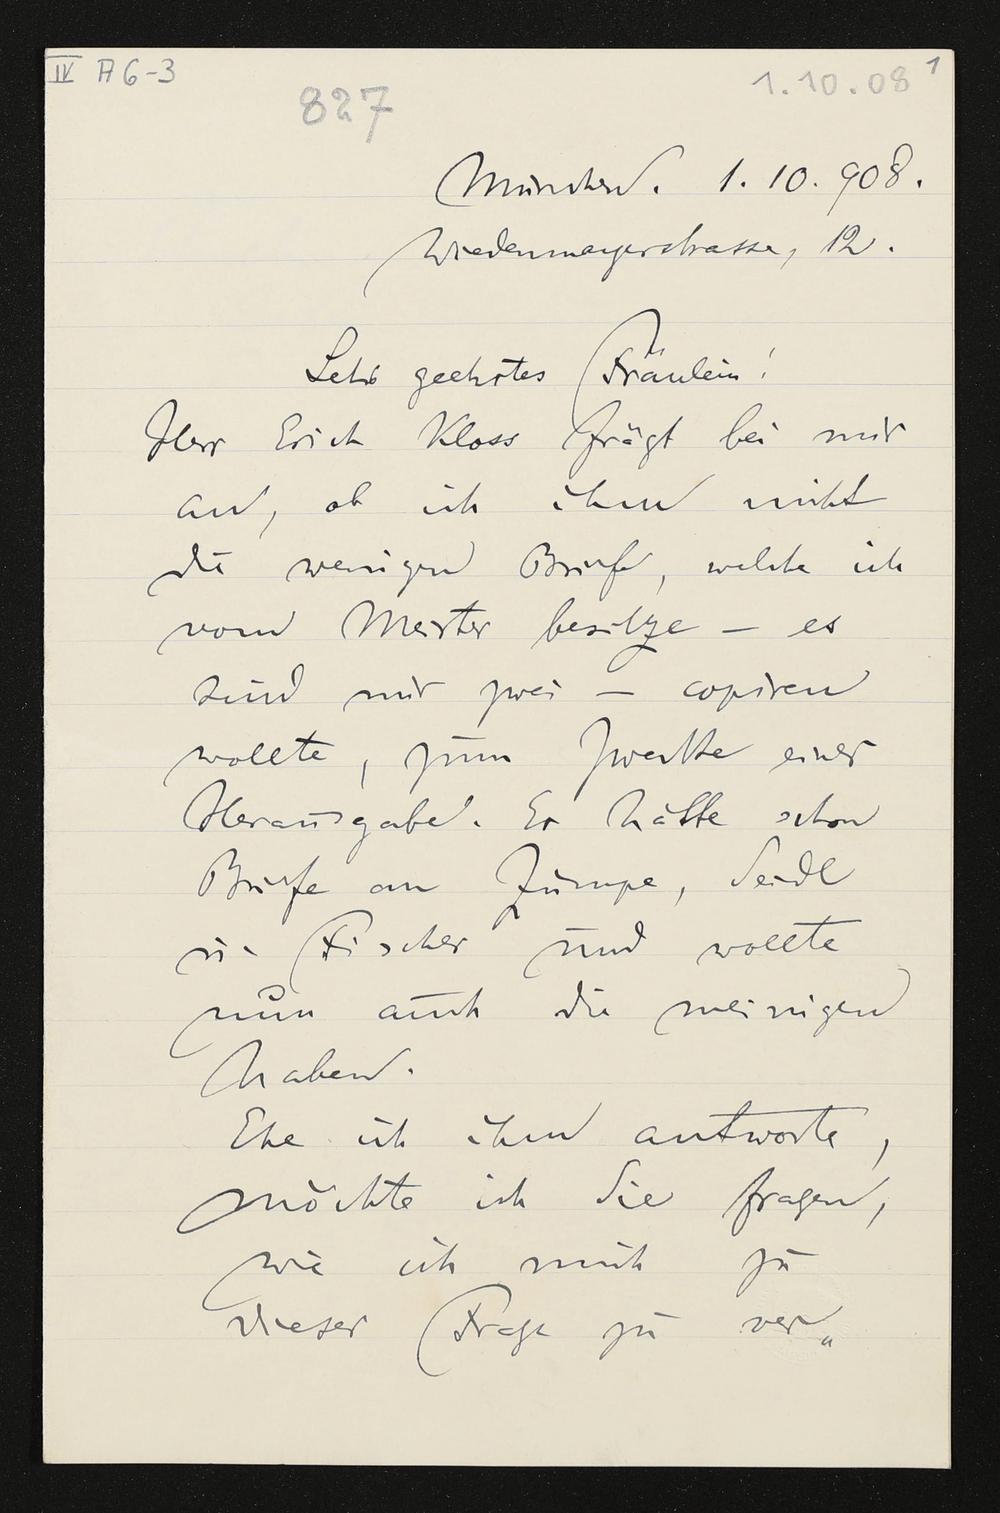 IV A 6-3
827
1.10.08
1
München. 1. 10. 908.
Wiedenmayerstrasse, 12.
Sehr geehrtes Fräulein!
Herr Erich Kloss frägt bei mir
an, ob ich ihm nicht
die wenigen Briefe, welche ich
vom Meister besitze – es
sind nur zwei – copiren
wollte, zum Zwecke einer
Herausgabe. Er hätte schon
Briefe an Zumpe, Seidl
u. Fischer und wollte
nun auch die meinigen
haben.
Ehe ich ihm antworte,
möchte ich Sie fragen,
wie ich mich zu
dieser Frage zu ver„